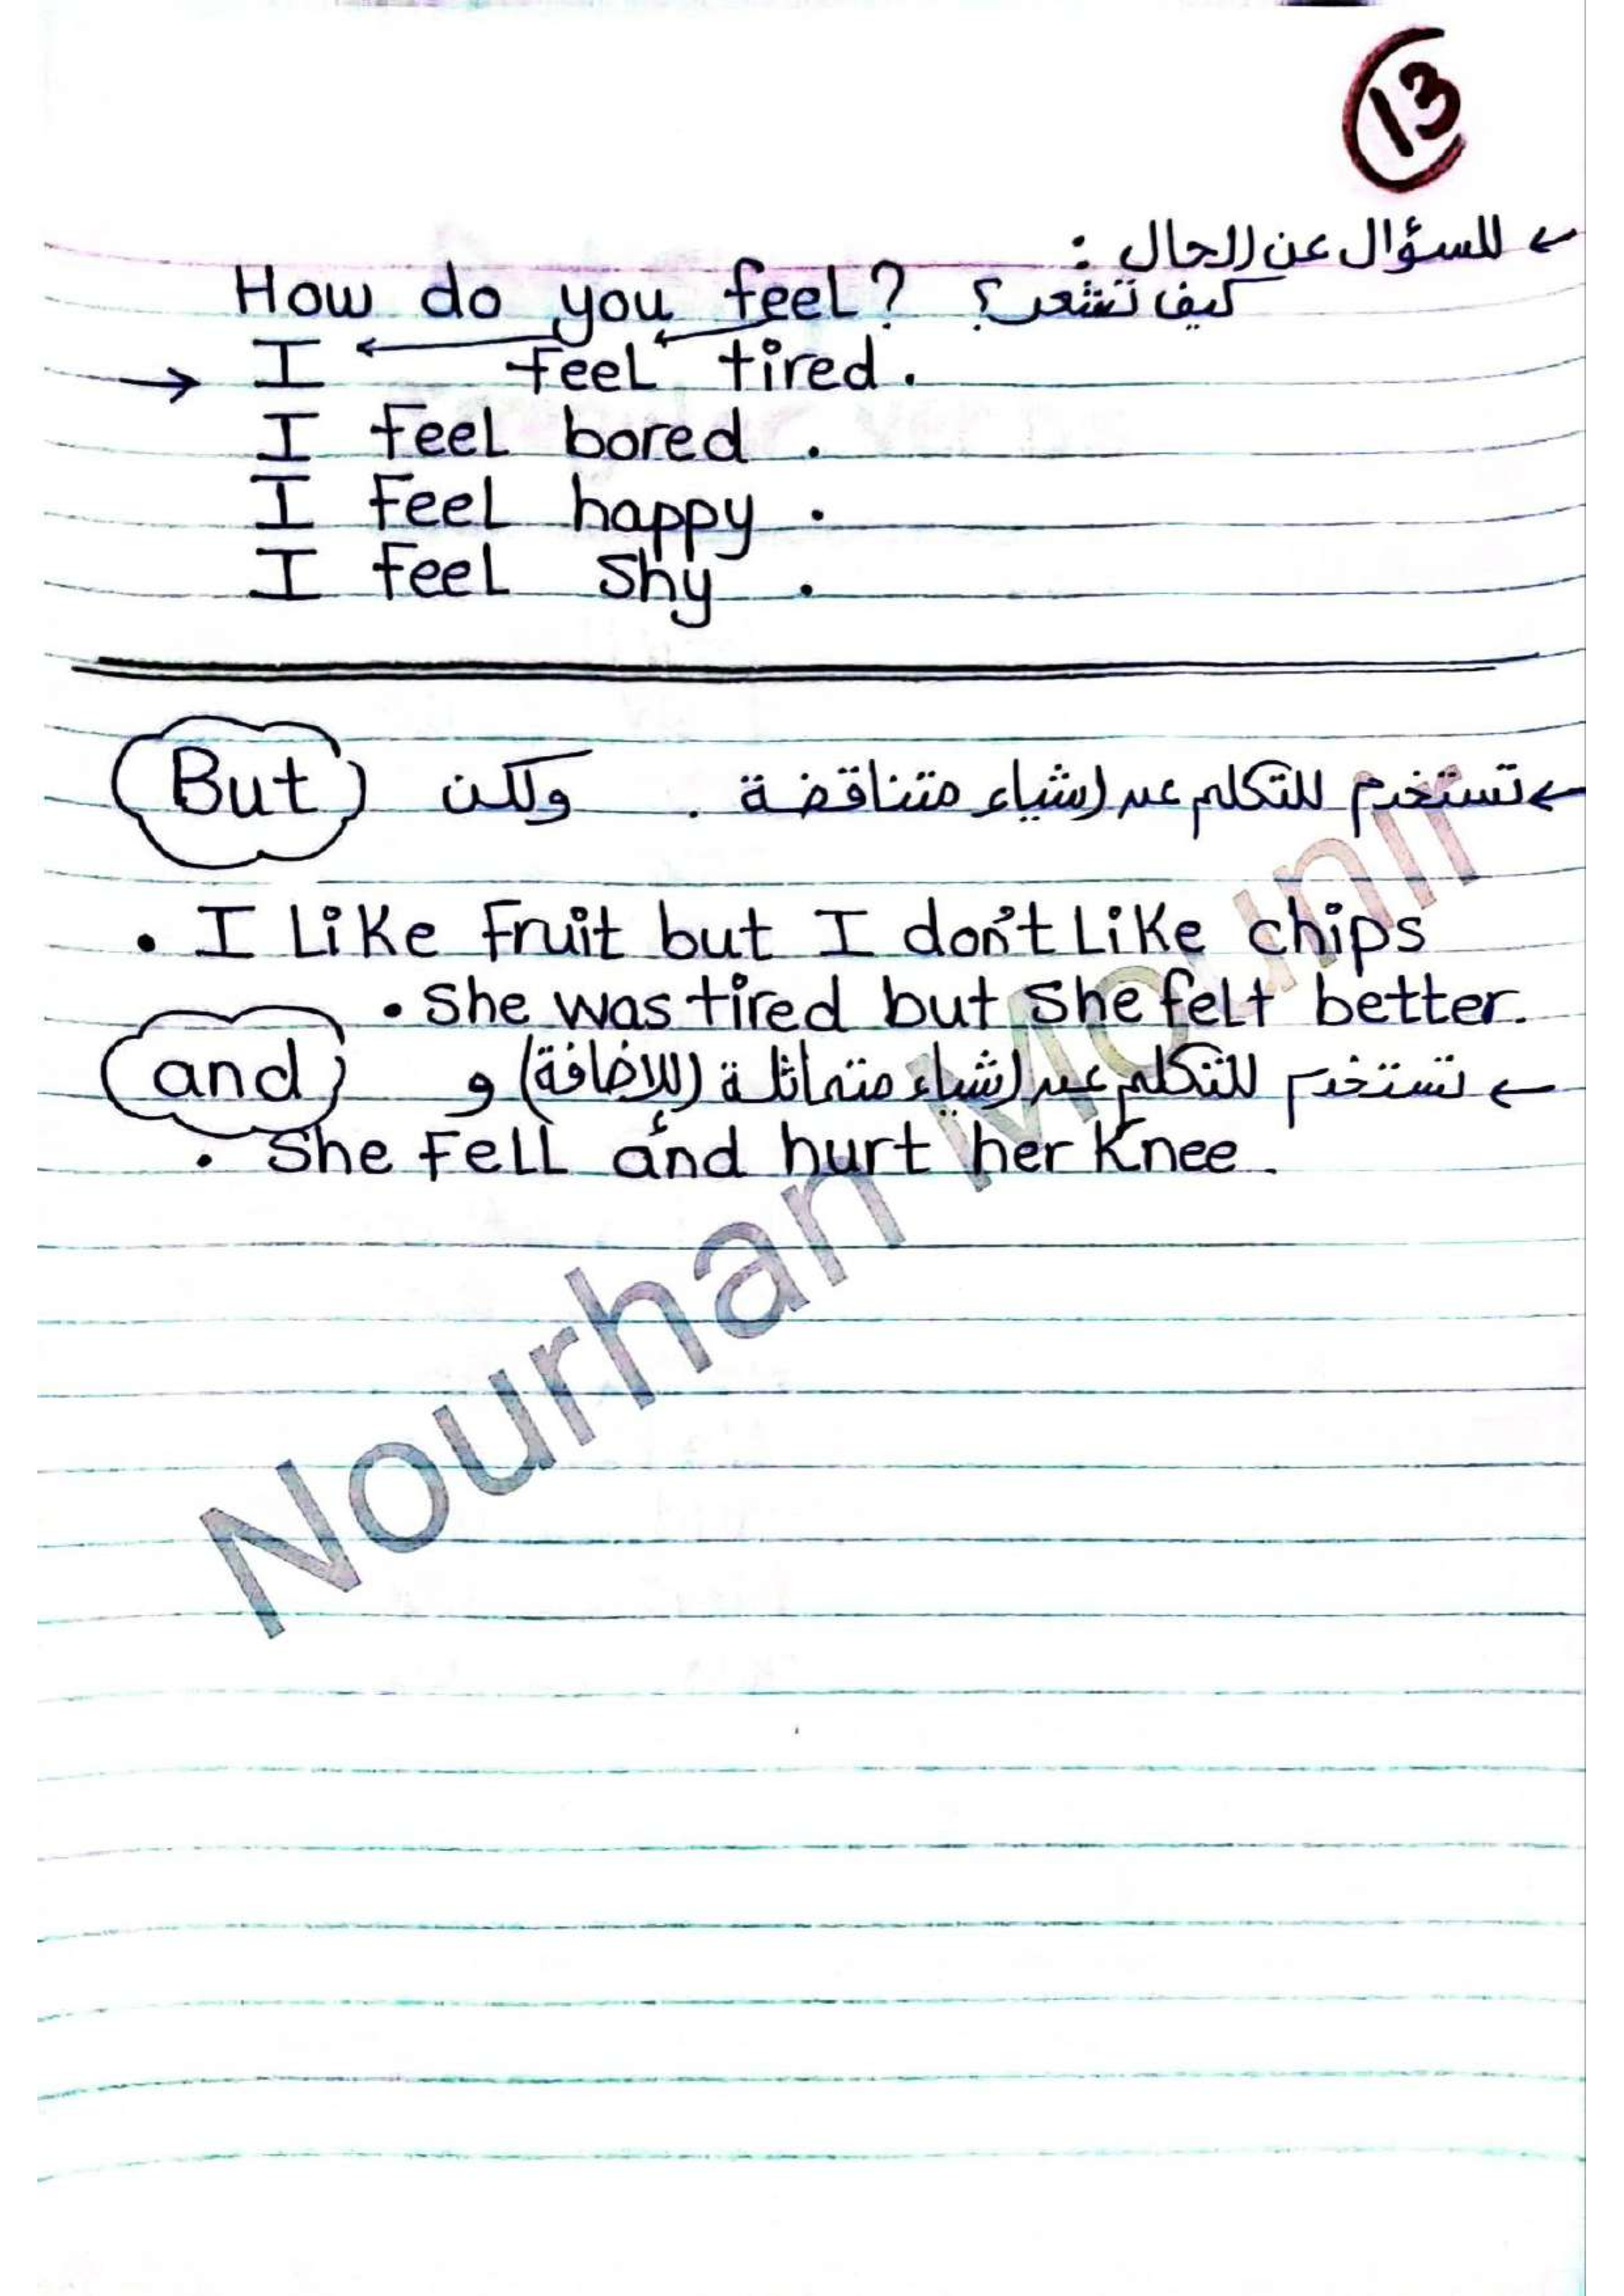 13
← للسؤال عن الحال :
How do you feel? كيف تشعر؟
→ I feel tired.
I feel bored .
I feel happy .
I feel shy .
But ولكن ← تستخدم للتكلم عن اشياء متناقضة .
• I Like Fruit but I don't Like chips
• She was tired but She felt better.
and و ← تستخدم للتكلم عن اشياء متماثلة (للإضافة)
• She Fell and hurt her Knee.
Nourhan Mounir